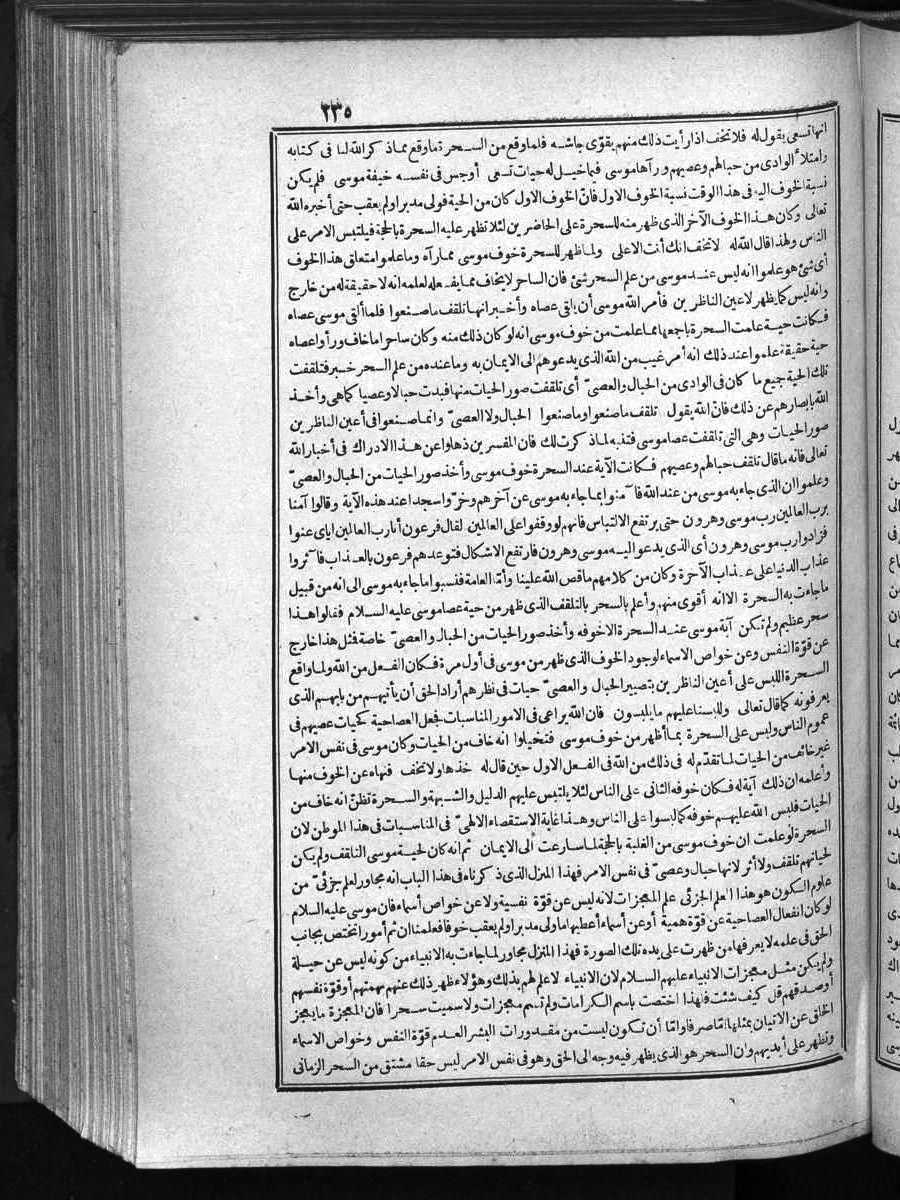 ٢٣٥
انها تسعى يقول له فلا تخف اذا رأيت ذلك منهم يقوّى جاشه فلما وقع من السحرة ما وقع مما ذكر الله لنا فى كتابه
وامتلأ الوادى من حبالهم وعصيهم ورآها موسى فيما خيل له حيات تسعى أوجس فى نفسه خيفة موسى فلم يكن
نسبة الخوف اليه فى هذا الوقت نسبة الخوف الاول فانّ الخوف الاول كان من الحية فولى مدبرا ولم يعقب حتى أخبره الله
تعالى وكان هذا الخوف الآخر الذى ظهر منه للسحرة على الحاضرين لئلا تظهر عليه السحرة بالحجة فيلتبس الامر على
الناس ولهذا قال الله له لا تخف انك أنت الاعلى ولما ظهر للسحرة خوف موسى مما رآه وما علموا متعلق هذا الخوف
أى شئ هو علموا انه ليس عند موسى من علم السحر شئ فان الساحر لا يخاف مما يفعله لعلمه انه لا حقيقة له من خارج
وانه ليس كما يظهر لاعين الناظرين فأمر الله موسى أن يلقى عصاه وأخبر انها تلقف ما صنعوا فلما ألقى موسى عصاه
فكانت حية علمت السحرة باجمعها مما علمت من خوف موسى انه لو كان ذلك منه وكان ساحرا ما خاف ورأوا عصاه
حية حقيقة علموا عند ذلك انه أمر غيب من الله الذى يدعوهم الى الايمان به وما عنده من علم السحر خبر فتلقفت
تلك الحية جميع ما كان فى الوادى من الحبال والعصىّ أى تلقفت صور الحيات منها فبدت حبالا وعصيا كما هى وأخذ
الله بابصارهم عن ذلك فانّ الله يقول تلقف ما صنعوا وما صنعوا الحبال ولا العصىّ وانما صنعوا فى أعين الناظرين
صور الحيات وهى التى تلقفت عصا موسى فتنبه لما ذكرت لك فان المفسرين ذهلوا عن هذا الادراك فى أخبار الله
تعالى فانه ما قال تلقف حبالهم وعصيهم فكانت الآية عند السحرة خوف موسى وأخذ صور الحيات من الحبال والعصىّ
وعلموا ان الذى جاء به موسى من عند الله فآمنوا بما جاء به موسى عن آخرهم وخرّوا سجدا عند هذه الآية وقالوا آمنا
برب العالمين رب موسى وهرون حتى يرتفع الالتباس فانهم لو وقفوا على العالمين لقال فرعون أنا رب العالمين اياى عنوا
فزادوا رب موسى وهرون أى الذى يدعو اليه موسى وهرون فارتفع الاشكال فتوعدهم فرعون بالعذاب فآثروا
عذاب الدنيا على عذاب الآخرة وكان من كلامهم ما قص الله علينا وأما العامة فنسبوا ما جاء به موسى الى انه من قبيل
ما جاءت به السحرة الا انه أقوى منهم وأعلم بالسحر بالتلقف الذى ظهر من حية عصا موسى عليه السلام فقالوا هذا
سحر عظيم ولم تكن آية موسى عند السحرة الا خوفه وأخذ صور الحيات من الحبال والعصىّ خاصة فمثل هذا خارج
عن قوّة النفس وعن خواص الاسماء لوجود الخوف الذى ظهر من موسى فى أول مرة فكان الفعل من الله ولما واقع
السحرة اللبس على أعين الناظرين بتصيير الحبال والعصىّ حيات فى نظرهم أراد الحق أن يأتيهم من بابهم الذى
يعرفونه كما قال تعالى وللبسنا عليهم ما يلبسون فان الله يراعى فى الامور المناسبات فجعل العصا حية كحيات عصيهم فى
عموم الناس ولبس على السحرة بما أظهر من خوف موسى فتخيلوا انه خاف من الحيات وكان موسى فى نفس الامر
غير خائف من الحيات لما تقدّم له فى ذلك من الله فى الفعل الاول حين قال له خذها ولا تخف فنهاه عن الخوف منها
وأعلمه ان ذلك آية له فكان خوفه الثانى على الناس لئلا يلتبس عليهم الدليل والشبهة والسحرة تظنّ انه خاف من
الحيات فلبس الله عليهم خوفه كما لبسوا على الناس وهذا غاية الاستقصاء الالهىّ فى المناسبات فى هذا الموطن لان
السحرة لو علمت ان خوف موسى من الغلبة بالحجة لما سارعت الى الايمان ثم انه كان لحية موسى التلقف ولم يكن
لحياتهم تلقف ولا أثر لانها حبال وعصىّ فى نفس الامر فهذا المنزل الذى ذكرناه فى هذا الباب انه مجاور لعلم جزئىّ من
علوم الكون هو هذا العلم الجزئى علم المعجزات لانه ليس عن قوّة نفسية ولا عن خواص أسماء فان موسى عليه السلام
لو كان انفعال العصا حية عن قوّة همية أو عن أسماء أعطيها ما ولى مدبرا ولم يعقب خوفا فعلمنا ان ثم أمورا تختص بجانب
الحق فى علمه لا يعرفها من ظهرت على يده تلك الصورة فهذا المنزل مجاور لما جاءت به الانبياء من كونه ليس عن حيلة
ولم يكن مثل معجزات الانبياء عليهم السلام لان الانبياء لا علم لهم بذلك وهؤلاء ظهر ذلك عنهم بهمتهم أو قوّة نفسهم
أو صدقهم قل كيف شئت فلهذا اختصت باسم الكرامات ولم تسم معجزات ولا سميت سحرا فان المعجزة ما يعجز
الخلق عن الاتيان بمثلها اما صرفا واما أن تكون ليست من مقدورات البشر لعدم قوّة النفس وخواص الاسماء
وتظهر على أيديهم وان السحر هو الذى يظهر فيه وجه الى الحق وهو فى نفس الامر ليس حقا مشتق من السحر الزمانى